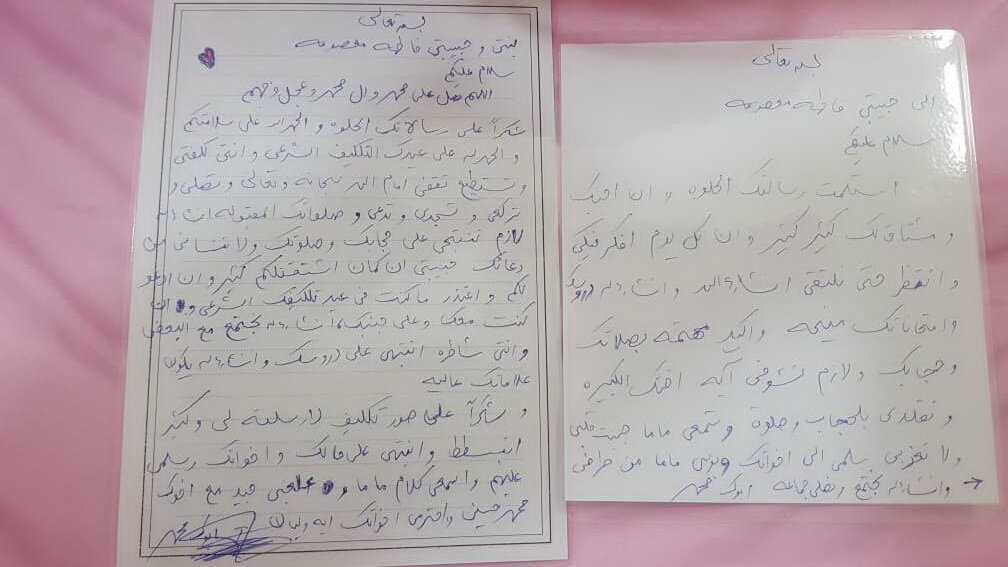 بسمه تعالى
بنتي و حبيبتي فاطمه معصومه
سلام عليكم
اللهم صل على محمد وال محمد وعجل فرجهم
شكراً على رسالاتك الحلوه و الحمدلله على سلامتكم
و الحمدلله على عيدك التكليف الشرعي و انتي كلفتي
و تستطيع تقفي امام الله سبحانه وتعالى و تصلي و
تركعي و تسجدي و تدعي و صلواتك المقبوله انشاءلله
لازم تنتبهي على حجابك وصلوتك ولا تنساني من
دعائك حبيبتي ان كمان اشتقتلكم كثير و ان ادعو
لكم و اعتذر ما كنت في عيد تكليفك الشرعي و
كنت معك وعلى جنبك انشاءلله نجتمع مع البعض
وانتي شاطره انتبهي على دروسك وانشاءلله يكون
علاماتك عاليه
و شكراً على صور تكليف لارسلته لي وكثير
انبسطط و انتبهي على حالك و اخواتك وسلمي
عليهم و اسمعي كلام ماما و العبي جيد مع اخوك
محمد حسين واحترمي اخواتك ايه وليان
ابوك محمد
بسمه تعالى
الى حبيبتي فاطمه معصومه
سلام عليكم
استلمت رسالتك الحلوه و ان احبك
و مشتاقتك كثير كثير و ان كل يوم افكر فيكي
و انتظر حتى نلتقي انشاءالله وانشاءلله دروسك
وامتحاناتك منيحه واكيد مهتمه بصلاتك
وحجابك ولازم تشوفي آيه اختك الكبيره
وتقلدي بلحجاب وصلوة وتسمعي ماما حبيت قلبي
ولا تعزبي سلمي الى اخواتك وبوسي ماما من طرافي
وانشاءلله نجتمع و نصلي جماعه ابوك محمد